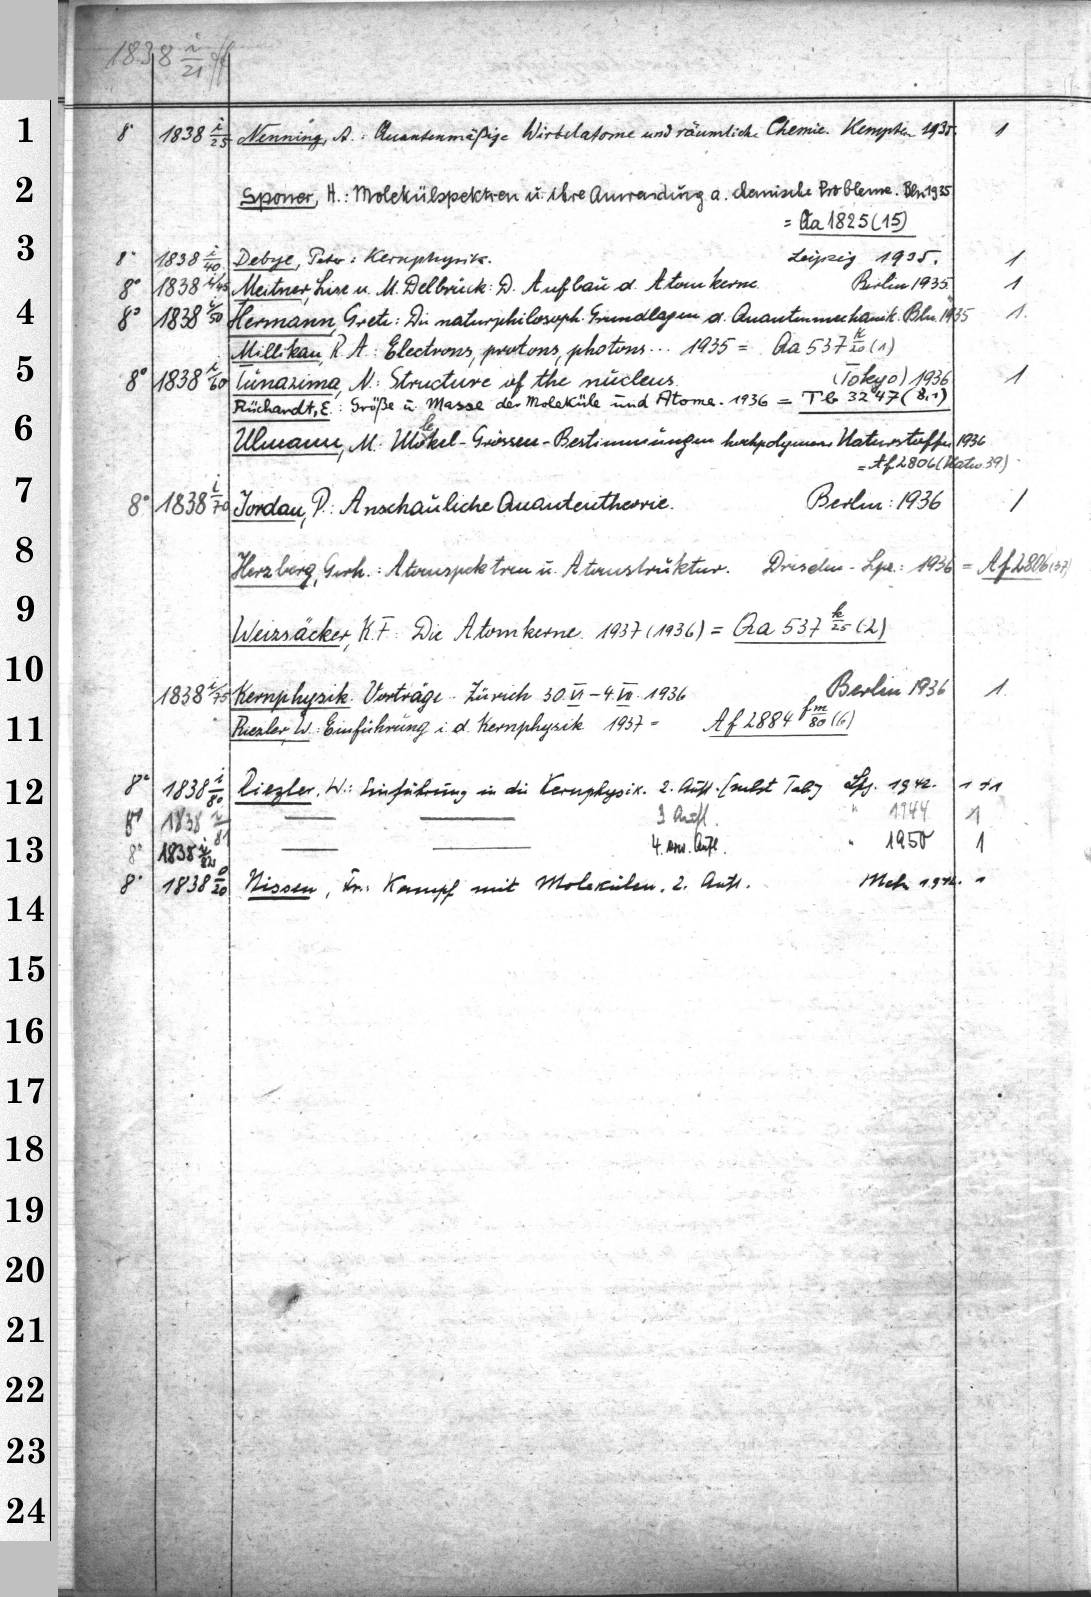 1838 i/21 ff
1 8° 1838 i/25 Nenning, A.: Quantenmäßige Wirbelatome und räumliche Chemie. Kempten 1935. 1
2 Sponer, H.: Molekülspektren u. ihre Anwendung a. chemische Probleme. Bln. 1935
= Qa 1825 (15)
3 8° 1838 i/40 Debye, Peter: Kernphysik. Leipzig 1935. 1
8° 1838 i/45 Meitner, Lise u. M. Delbrück: D. Aufbau d. Atomkerne. Berlin 1935. 1
4 8° 1838 i/50 Hermann, Grete: Die naturphilosoph. Grundlagen d. Quantenmechanik. Bln. 1935 1.
Millikan, R. A.: Electrons, protons, photons... 1935 = Qa 537 k/20 (1)
5 8° 1838 i/60 Tunazima, N.: Structure of the nucleus. (Tokyo) 1936 1
Rüchardt, E.: Größe u. Masse der Moleküle und Atome. 1936 = Tb 3247 (8,1)
6 Ulmann, M. Molekel-Grössen-Bestimmungen hochpolymerer Naturstoffe 1936
= Af 2806 (Natw 39)
7 8° 1838 i/70 Jordan, P.: Anschauliche Quantentheorie. Berlin: 1936 1
8 Herzberg, Gerh.: Atomspektren u. Atomstruktur. Dresden - Lpz.: 1936 = Af 2806 (37)
9 Weizsäcker, K. F.: Die Atomkerne. 1937 (1936) = Qa 537 k/25 (2)
10 1838 i/75 Kernphysik. Vorträge. Zürich 30.VI - 4.VII. 1936 Berlin 1936 1.
11 Riezler, W.: Einführung i. d. Kernphysik 1937 = Af 2884 fm/80 (6)
12 8° 1838 i/80 Riezler, W.: Einführung in die Kernphysik. 2. Aufl. [nebst Tab.] Lpz. 1942. 1+1
8° 1838 i/81 — — 3 Aufl. " 1944 1
13 8° 1838 i/82 — — 4. erw. Aufl. " 1950 1
8° 1838 o/20 Nissen, Fr.: Kampf mit Molekülen. 2. Aufl. 1942. 1
14
15
16
17
18
19
20
21
22
23
24